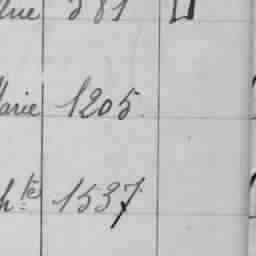 381
arie 1205.
h.te 1537